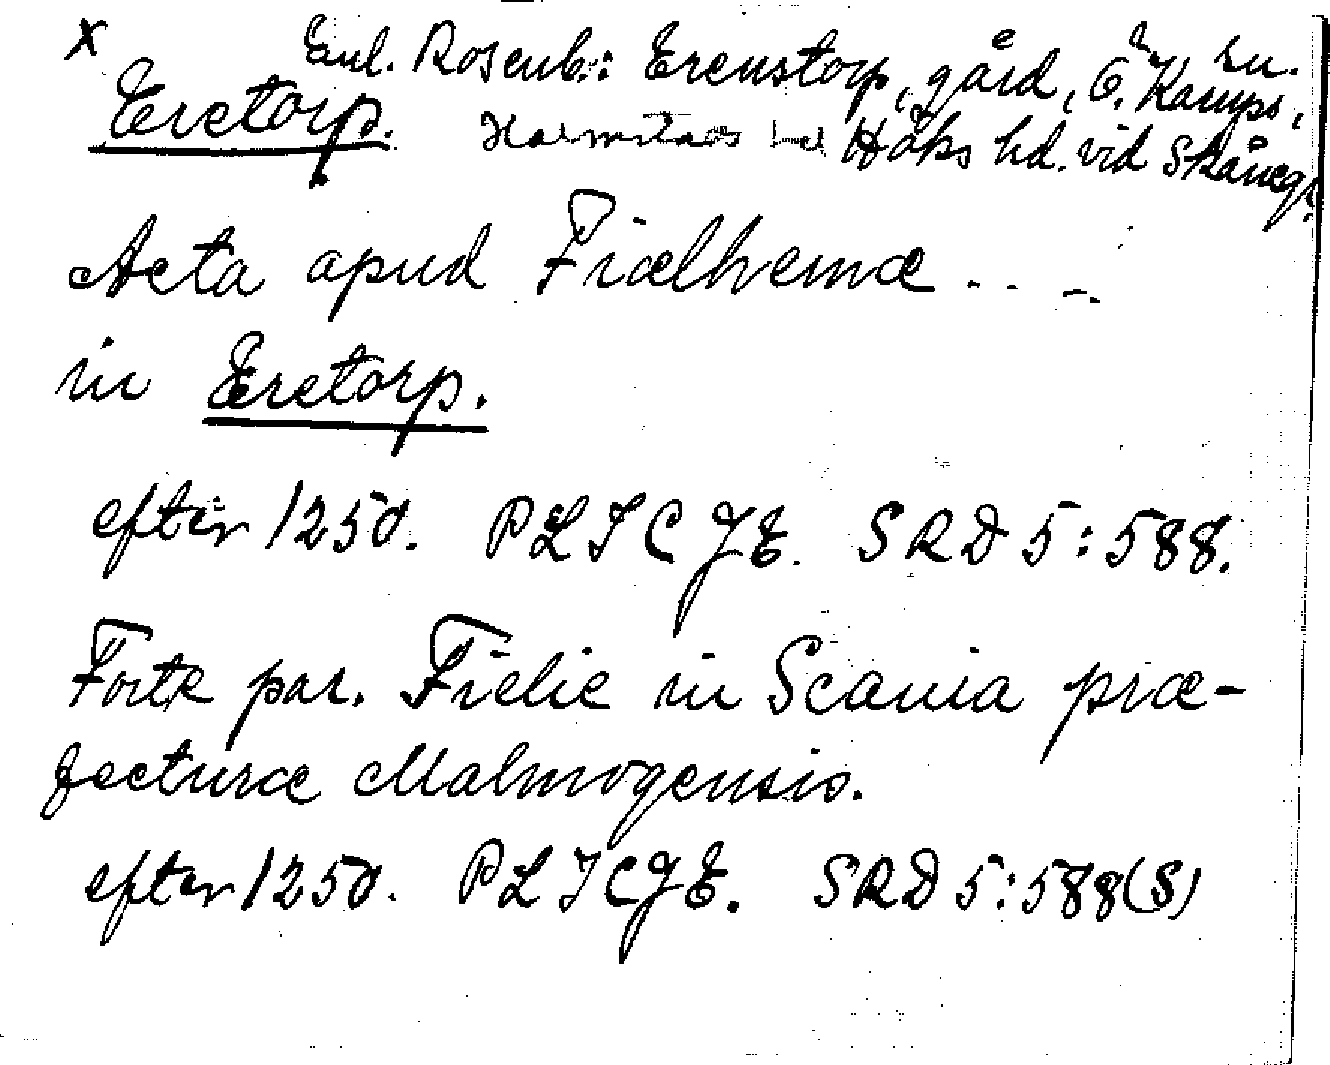 x Enl. Rosenb.: Erenstorp, gård, Ö. Karups sn.
Eretorp. Halmstads hd Höks hd. vid Skånegr.
Acta apud Fiælhemæ . . . .
in Eretorp.
efter 1250. PLTCJE. SRD 5:588.
Forte par. Fielie in Scania præ-
fecturæ Malmogensis.
efter 1250. PLTCJE. SRD 5:588(S)